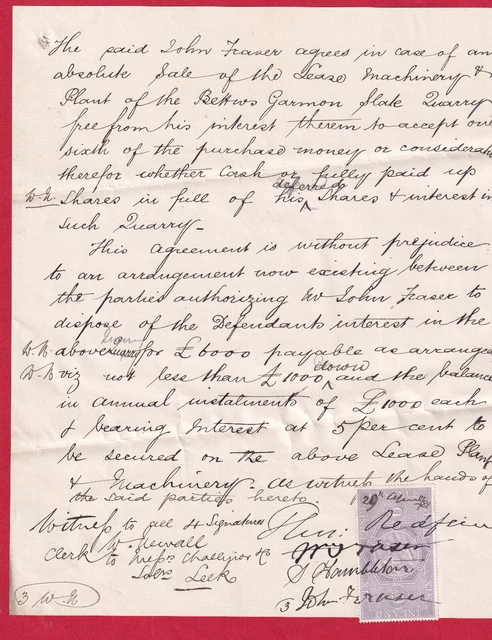 The said John Fraser agrees in case of an
absolute Sale of the Lease Machinery &
Plant of the Bettws Garmon Slate Quarry
free from his interest therein to accept one
sixth of the purchase money or considerat
therefor whether Cash or fully paid up
deferred
W.N. Shares in full of his Shares & interest in
such Quarry—
This agreement is without prejudice
to an arrangement now existing between
the parties authorizing Mr John Fraser to
dispose of the Defendants interest in the
W.N. above for £6000 payable as arranged
down
W.N. viz not less than £1000 and the balance
in annual instalments of £1000 each
& bearing Interest at 5 per cent to
be secured on the above Lease Plant
& Machinery. as witness the hands of
the said parties hereto.
29th
Witness to all 4 Signatures
W. Newall
Clerk to Messrs Challinor &
Leek
Redfern
W Fraser
S Hambleton
3 John Fraser
3 W.N.